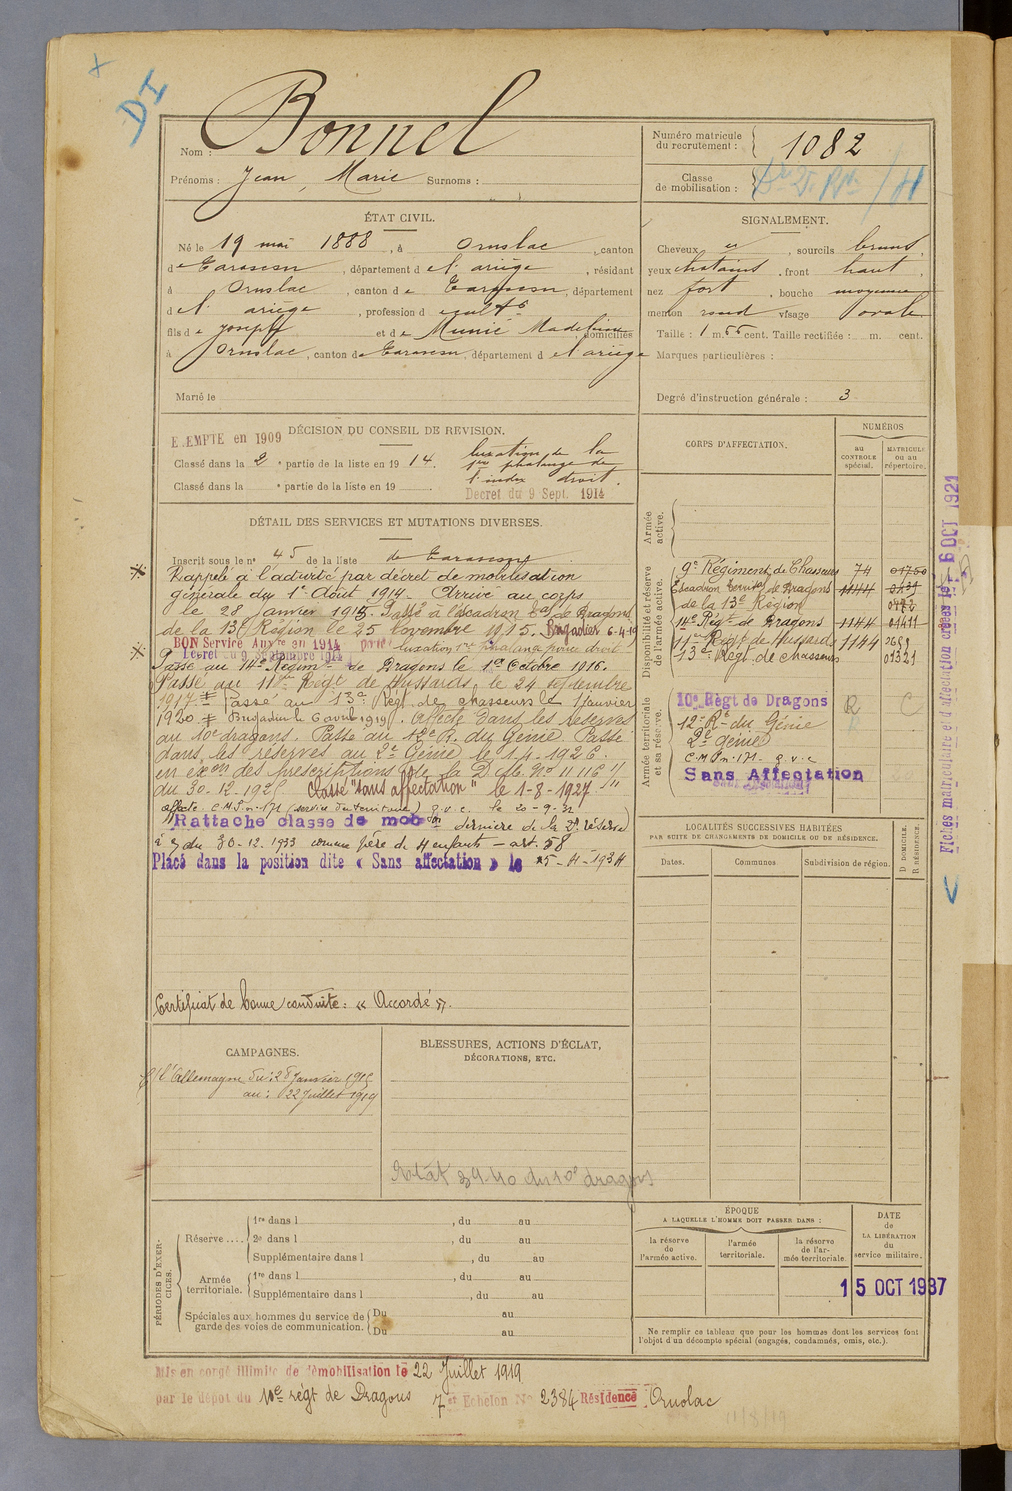 DI
Nom : Bonnel
Prénoms : Jean, Marie Surnoms :
Numéro matricule du recrutement : 1082
Classe de mobilisation :
ÉTAT CIVIL.
Né le 19 mai 1888, à Ornolac, canton
de Tarascon, département de l'ariège, résidant
à Ornolac, canton de Tarascon, département
de l' ariège, profession d cult r
fils de Joseph et de Munié Madeleine domiciliés
à Ornolac, canton de Tarascon, département d e l'ariège
Marié le
SIGNALEMENT.
Cheveux et, sourcils bruns
yeux chatains, front haut
nez fort, bouche moyenne
menton rond visage ovale
Taille : 1 m. 66 cent. Taille rectifiée : m. cent.
Marques particulières :
Degré d'instruction générale : 3
DÉCISION DU CONSEIL DE REVISION.
E EMPTE en 1909
Classé dans la 2e partie de la liste en 1914.
Classé dans la e partie de la liste en 19
luxation de la
1re phalange de
l'index droit.
Decret du 9 Sept. 1914
CORPS D'AFFECTATION.
NUMÉROS
au CONTROLE spécial.
MATRICULE ou au répertoire.
DÉTAIL DES SERVICES ET MUTATIONS DIVERSES.
Inscrit sous le n° 45 de la liste de Tarascon
Rappelé à l'activité par décret de mobilisation
générale du 1er Août 1914. Arrivé au corps
le 28 Janvier 1915. Passé à l'escadron Tal de Dragons
de la 13e Région le 25 Novembre 1915. Brigadier 6-4-19
BON Service Auxre en 1914 pour luxation 1re phalange pouce droit
Décret du 9 Septembre 1914
Passé au 14e Régimt de Dragons le 1er Octobre 1916.
Passé au 11me Régt de Hussards le 24 septembre
1917 Passé au 13e Régt de chasseurs le 1 Janvier
1920 Brigadier le 6 avril 1919. Affecté dans les réserves
au 10e dragons. Passé au 12e R. du Génie. Passé
dans les réserves au 2e Génie le 1-4-1926
en exéon des prescriptions de la D. M. No 11116
du 30-12-1925 Classé "sans affectation" le 1-8-1927
affecté C.M.P.n.171 (service du territoire) g.v.c. le 20-9-32
Rattaché classe de mobon dernière de la 2e réserve
à du 30.12.1933 comme père de 4 enfants - art. 58
Placé dans la position dite « Sans affectation » le 25-4-1934
Certificat de bonne conduite : « Accordé ».
Armée active.
Disponibilité et réserve de l'armée active.
9e Régiment de Chasseurs 74 01750
Escadron Territal de Dragons 1144
de la 13e Région
14e Régt de Dragons 1144 01411
11me Régt de Hussards 1144 2658
13e Régt de chasseurs 01321
Armée territoriale et sa réserve.
10e Règt de Dragons R C
12e Rt du Génie
2e Génie
C.M.P.n.171. g.v.c
Sans Affectation
LOCALITÉS SUCCESSIVES HABITÉES
PAR SUITE DE CHANGEMENTS DE DOMICILE OU DE RÉSIDENCE.
Dates. Communes Subdivision de région.
D DOMICILE. R RÉSIDENCE.
Fiches matriculaire et d'affectation créées le 6 OCT 1921
CAMPAGNES.
C/ l'Allemagne du : 28 Janvier 1915
au : 22 Juillet 1919
BLESSURES, ACTIONS D'ÉCLAT,
DÉCORATIONS, ETC.
du 10e dragons
PÉRIODES D'EXERCICES.
Réserve.... 1re dans l , du au
2e dans l , du au
Supplémentaire dans l , du au
Armée territoriale. 1re dans l , du au
Supplémentaire dans l , du au
Spéciales aux hommes du service de garde des voies de communication. Du au
Du au
ÉPOQUE
A LAQUELLE L'HOMME DOIT PASSER DANS :
la réserve de l'armée active.
l'armée territoriale.
la réserve de l'armée territoriale.
DATE de LA LIBÉRATION du service militaire.
15 OCT 1937
Ne remplir ce tableau que pour les hommes dont les services font
l'objet d'un décompte spécial (engagés, condamnés, omis, etc.).
Mis en congé illimité de démobilisation le 22 Juillet 1919
par le dépôt du 10e régt de Dragons 7e Echelon No 2384 Résidence Ornolac
11/8/19